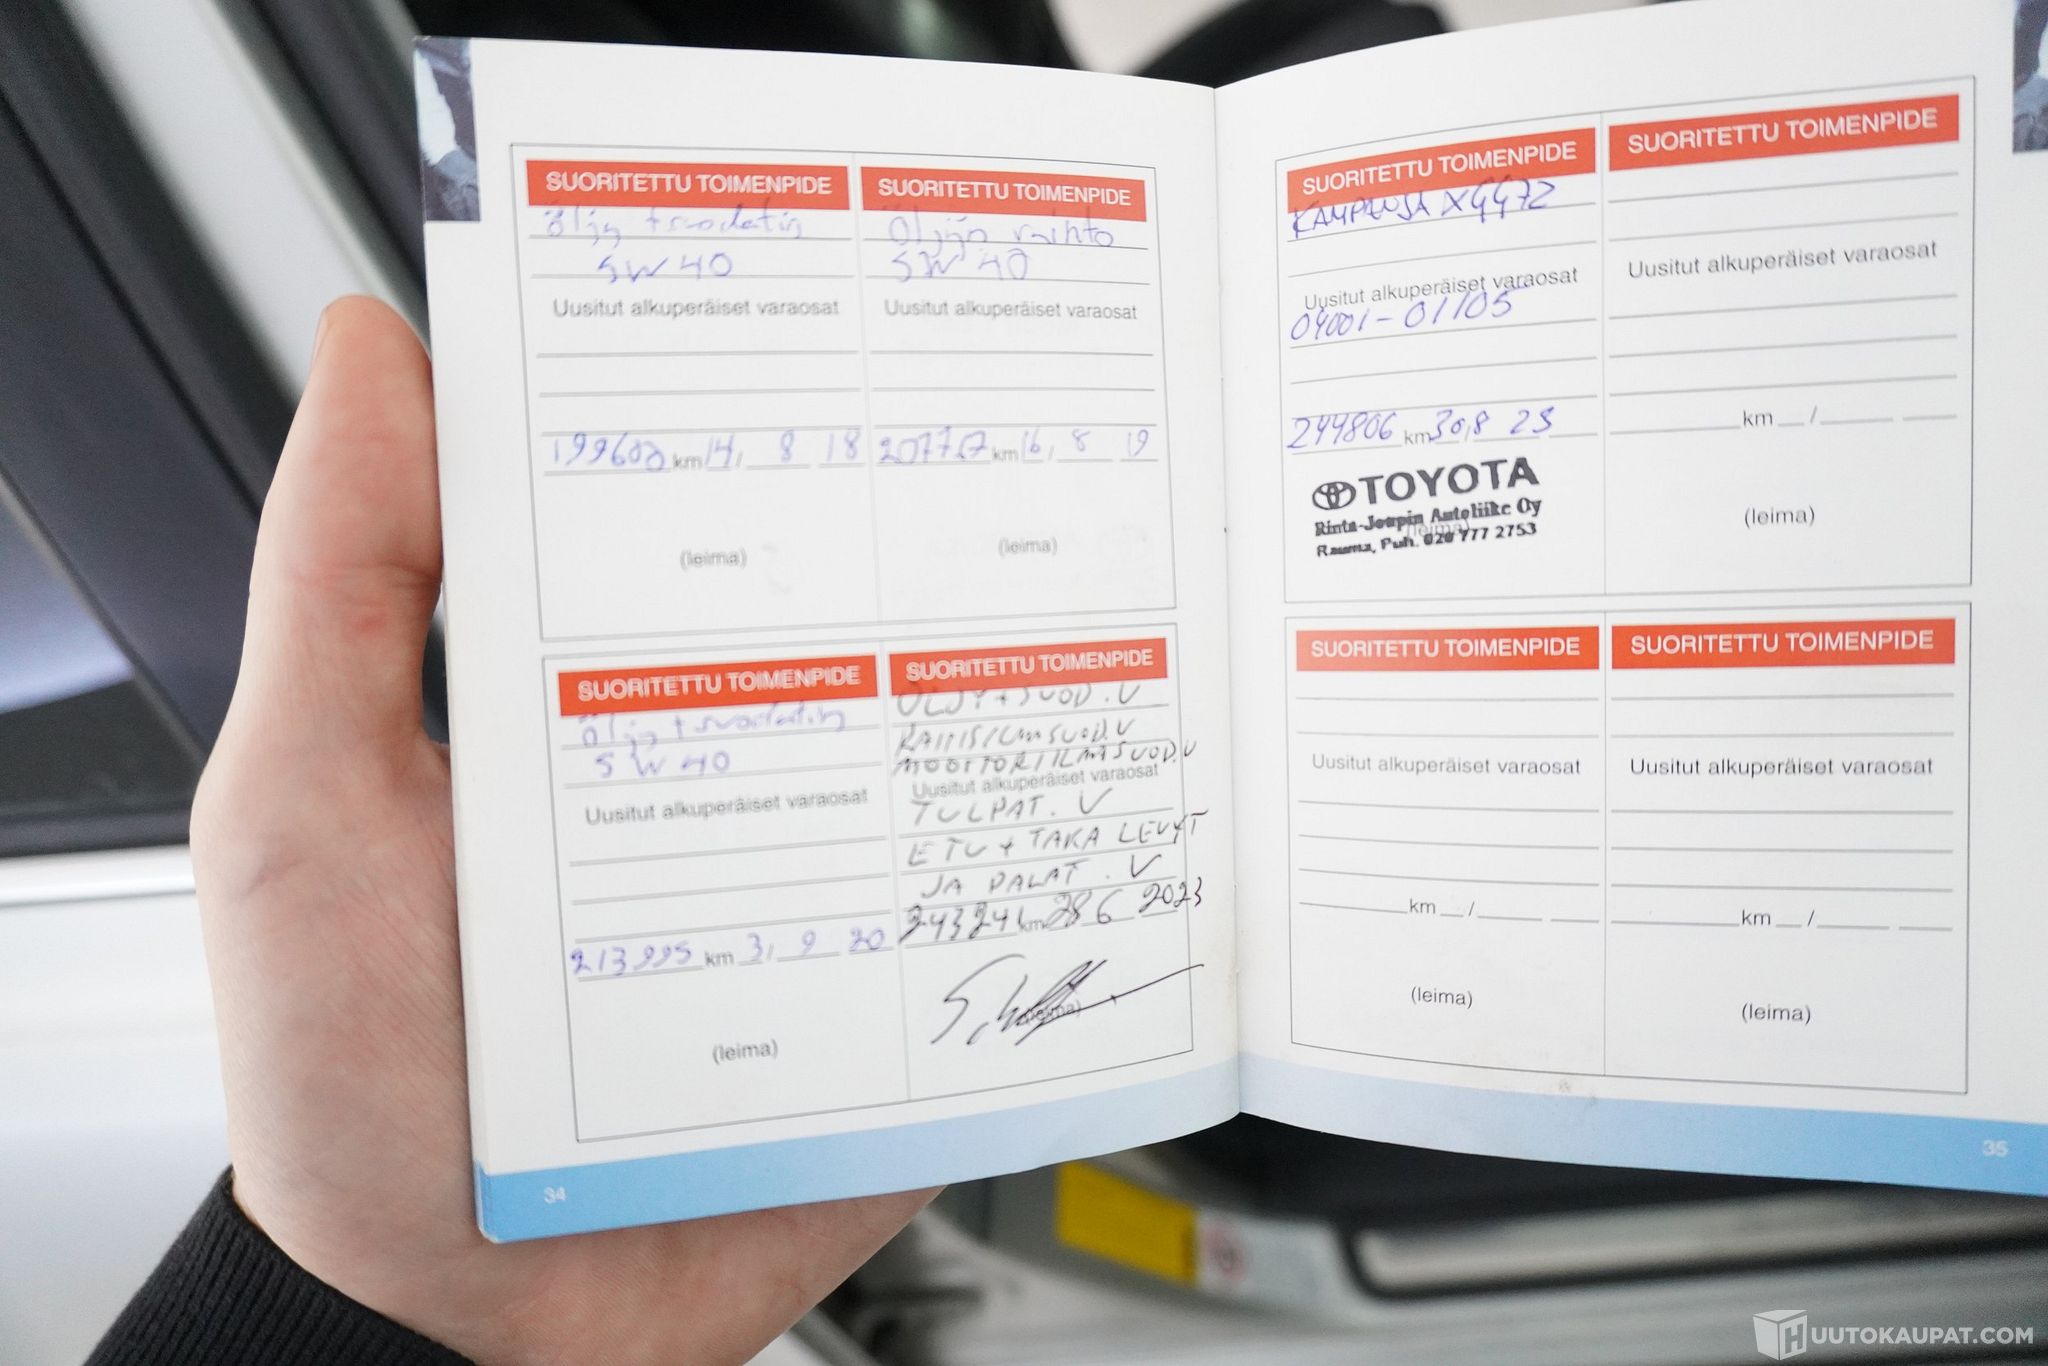 SUORITETTU TOIMENPIDE
Öljy + suodatin
5W40
Uusitut alkuperäiset varaosat
199600 km 14, 8 18
(leima)
SUORITETTU TOIMENPIDE
Öljyn vaihto
5W 40
Uusitut alkuperäiset varaosat
207717 km 16, 8 19
(leima)
SUORITETTU TOIMENPIDE
Öljy + suodatin
5W40
Uusitut alkuperäiset varaosat
213995 km 3, 9 20
(leima)
SUORITETTU TOIMENPIDE
ÖLJY + SUOD. V
RAITISILMASUOD. V
MOOTTORI ILMASUOD. V
Uusitut alkuperäiset varaosat
TULPAT. V
ETU + TAKA LEVYT
JA PALAT. V
243241 km 28 6 2023
(leima)
34
SUORITETTU TOIMENPIDE
KAMPANJA XGG72
Uusitut alkuperäiset varaosat
04001-01105
244806 km 30,8 23
TOYOTA
Rinta-Joupin Autoliike Oy
(leima)
Rauma, Puh. 020 777 2753
SUORITETTU TOIMENPIDE
Uusitut alkuperäiset varaosat
km /
(leima)
SUORITETTU TOIMENPIDE
Uusitut alkuperäiset varaosat
km /
(leima)
SUORITETTU TOIMENPIDE
Uusitut alkuperäiset varaosat
km /
(leima)
35
HUUTOKAUPAT.COM